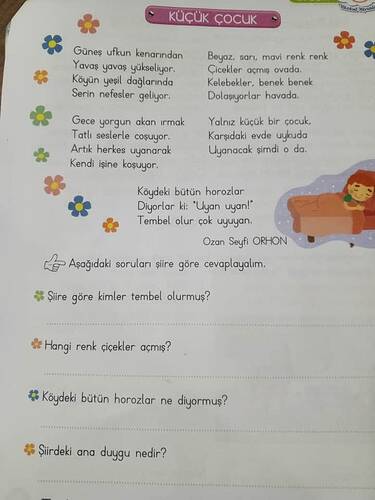 KÜÇÜK ÇOCUK
Güneş ufkun kenarından
Yavaş yavaş yükseliyor.
Köyün yeşil dağlarında
Serin nefesler geliyor.
Beyaz, sarı, mavi renk renk
Çicekler açmış ovada.
Kelebekler, benek benek
Dolaşıyorlar havada.
Gece yorgun akan ırmak
Tatlı seslerle coşuyor.
Artık herkes uyanarak
Kendi işine koşuyor.
Yalnız küçük bir çocuk,
Karşıdaki evde uykuda
Uyanacak şimdi o da.
Köydeki bütün horozlar
Diyorlar ki: "Uyan uyan!"
Tembel olur çok uyuyan.
Ozan Seyfi ORHON
Aşağıdaki soruları şiire göre cevaplayalım.
Şiire göre kimler tembel olurmuş?
Hangi renk çiçekler açmış?
Köydeki bütün horozlar ne diyormuş?
Şiirdeki ana duygu nedir?